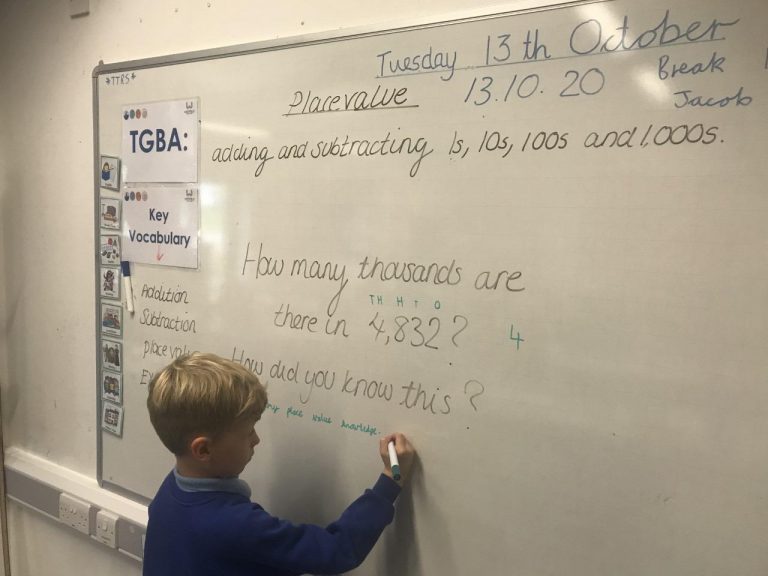 *TTRS*
Tuesday 13th October
Place value 13.10.20
Break
Jacob
TGBA:
adding and subtracting 1s, 10s, 100s and 1,000s.
Key
Vocabulary
Addition
Subtraction
place
How many thousands are
TH H T O
there in 4,832? 4
How did you know this?
my place value knowledge.